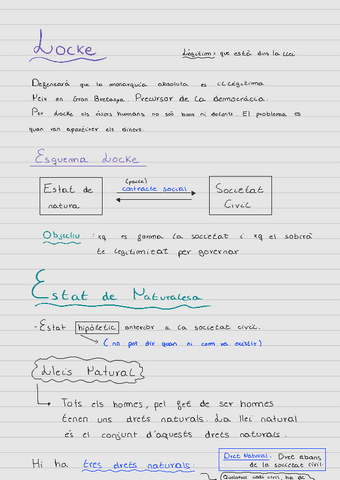 Locke
Legítim: que està dins la llei
Defensarà que la monarquia absoluta es il·legítima
Neix en Gran Bretanya. Precursor de la democràcia.
Per Locke els éssers humans no són bons ni dolents. El problema es
quan van aparèixer els diners.
Esquema Locke
Estat de
natura
(pacte)
contracte social
Societat
Civil
Objectiu: xq es forma la societat i xq el sobirà
te legitimitat per governar
Estat de Naturalesa
-Estat hipòtetic anterior a la societat civil.
(no pot dir quan ni com va existir)
Lleis Natural
Tots els homes, pel fet de ser homes
tenen uns drets naturals. La llei natural
és el conjunt d'aquests drets naturals.
Hi ha tres drets naturals:
Dret Natural: Dret abans
de la societat civil.